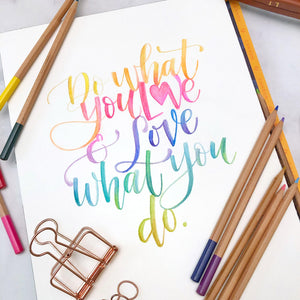 Do what
you Love
& Love
what you
do.